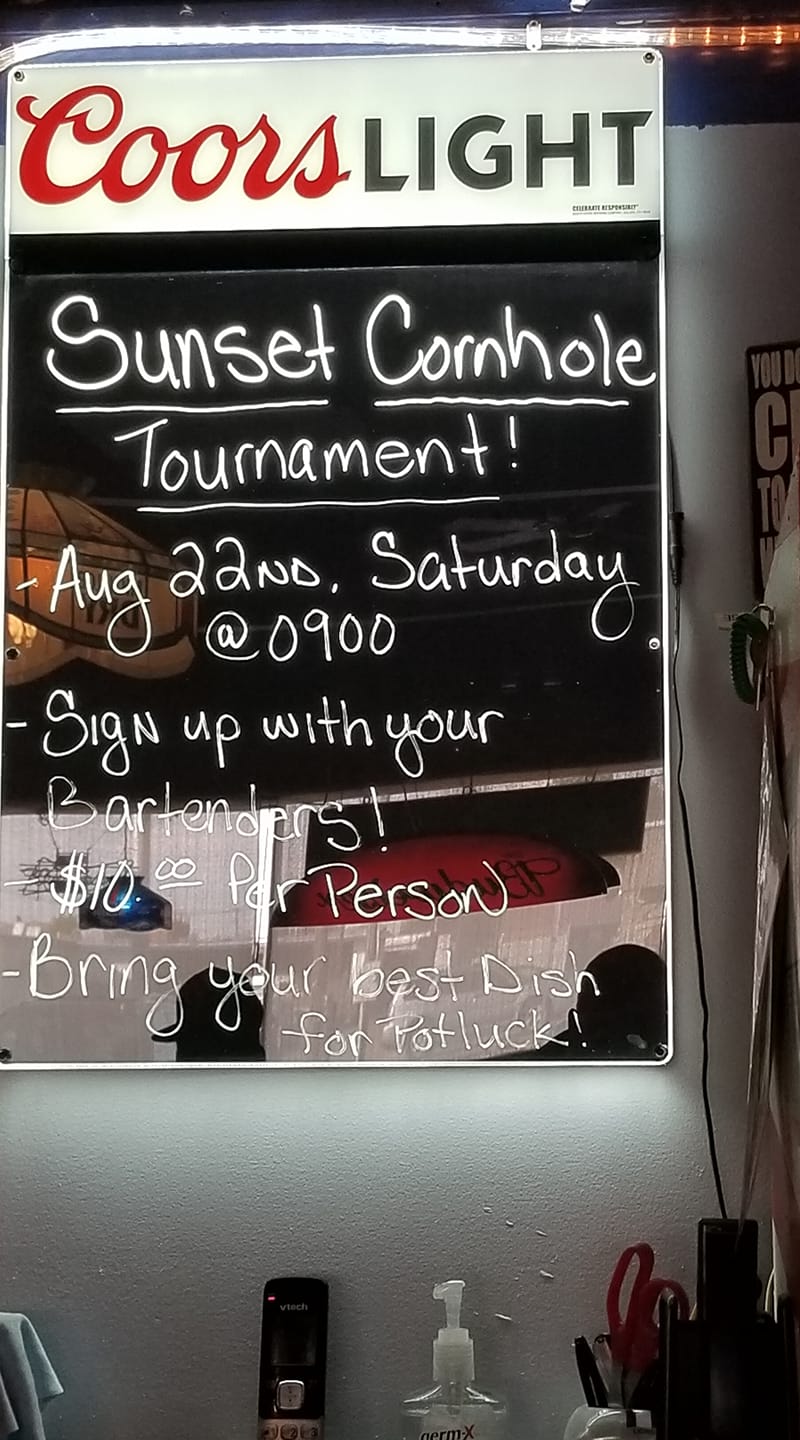 Coors LIGHT
CELEBRATE RESPONSIBLY
Sunset Cornhole
Tournament!
- Aug 22ND, Saturday
@ 0900
- SigN up with your
Bartenders!
- $10.00 Per PersoN
- Bring your best Dish
for Potluck!
YOU DO
C
TO
vtech
germ-X